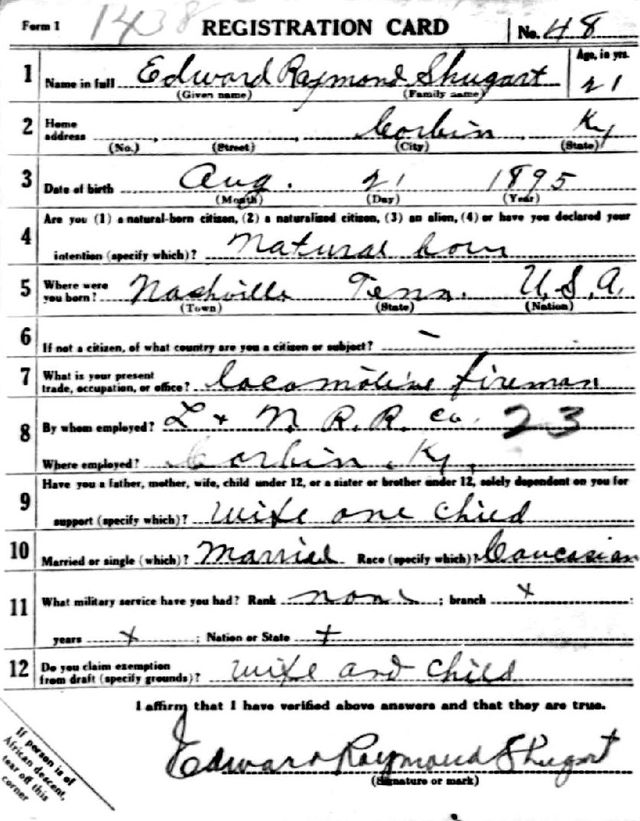 Form 1 1438 REGISTRATION CARD No. 48
1 Name in full Edward Raymond Shugart Age, in yrs. 21
(Given name) (Family name)
2 Home address Corbin Ky
(No.) (Street) (City) (State)
3 Date of birth Aug. 21 1895
(Month) (Day) (Year)
4 Are you (1) a natural-born citizen, (2) a naturalized citizen, (3) an alien, (4) or have you declared your
intention (specify which)? Natural born
5 Where were you born? Nashville Tenn. U.S.A.
(Town) (State) (Nation)
6 If not a citizen, of what country are you a citizen or subject? –
7 What is your present trade, occupation, or office? Locomotive fireman
8 By whom employed? L & N. R. R. Co. 23
Where employed? Corbin, Ky,
9 Have you a father, mother, wife, child under 12, or a sister or brother under 12, solely dependent on you for
support (specify which)? Wife one child
10 Married or single (which)? Married Race (specify which)? Caucasian
11 What military service have you had? Rank none ; branch x
years x ; Nation or State x
12 Do you claim exemption from draft (specify grounds)? Wife and child
I affirm that I have verified above answers and that they are true.
Edward Raymond Shugart
(Signature or mark)
If person is of
African descent,
tear off this
corner